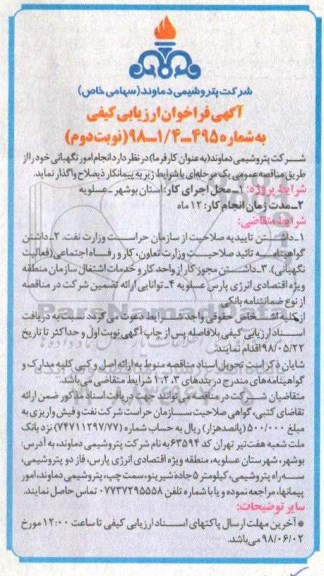 شرکت پتروشیمی دماوند (سهامی خاص)
آگهی فراخوان ارزیابی کیفی
به شماره ۴۹۵-۱/۴-۹۸ (نوبت دوم)
شرکت پتروشیمی دماوند (به عنوان کارفرما) در نظر دارد انجام امور نگهبانی خود را از
طریق مناقصه عمومی یک مرحله‌ای با شرایط زیر به پیمانکار ذیصلاح واگذار نماید.
شرایط پروژه: ۱-محل اجرای کار: استان بوشهر-عسلویه
۲-مدت زمان انجام کار: ۱۲ ماه
شرایط متقاضی:
۱-داشتن تاییدیه صلاحیت از سازمان حراست وزارت نفت، ۲-داشتن
گواهینامه تائید صلاحیت وزارت تعاون، کار و رفاه اجتماعی (فعالیت
نگهبانی). ۳-داشتن مجوز کار از واحد کار و خدمات اشتغال سازمان منطقه
ویژه اقتصادی انرژی پارس عسلویه ۴-توانایی ارائه تضمین شرکت در مناقصه
از نوع ضمانتنامه بانکی
از کلیه اشخاص حقوقی واجد شرایط دعوت می‌گردد نسبت به دریافت
اسناد ارزیابی کیفی بلافاصله پس از چاپ آگهی نوبت اول و حداکثر تا تاریخ
۹۸/۰۵/۲۲ اقدام نمایند.
شایان ذکر است تحویل اسناد مناقصه منوط به ارائه اصل و کپی کلیه مدارک و
گواهینامه‌های مندرج در بندهای ۱،۲،۳ شرایط متقاضی می‌باشد.
متقاضیان شرکت در مناقصه می‌توانند جهت دریافت اسناد مذکور ضمن ارائه
تقاضای کتبی، گواهی صلاحیت سازمان حراست شرکت نفت و فیش واریزی به
مبلغ ۵۰۰/۰۰۰ (پانصدهزار) ریال به حساب شماره (۷۴۷۱۱۲۹۷/۷۷) نزد بانک
ملت شعبه هفت تیر تهران کد ۶۳۵۹۴ به نام شرکت پتروشیمی دماوند، به آدرس
بوشهر، شهرستان عسلویه، منطقه ویژه اقتصادی انرژی پارس، فاز دو پتروشیمی،
سه راه پتروشیمی، کیلومتر ۵ جاده شیرینو، سمت چپ، پتروشیمی دماوند، امور
پیمانها، مراجعه نموده و یا با شماره تلفن ۰۷۷۳۷۲۹۵۵۵۸ تماس حاصل نمایند.
سایر توضیحات:
* آخرین مهلت ارسال پاکتهای اسناد ارزیابی کیفی تا ساعت ۱۲:۰۰ مورخ
۹۸/۰۶/۰۲ می‌باشد.